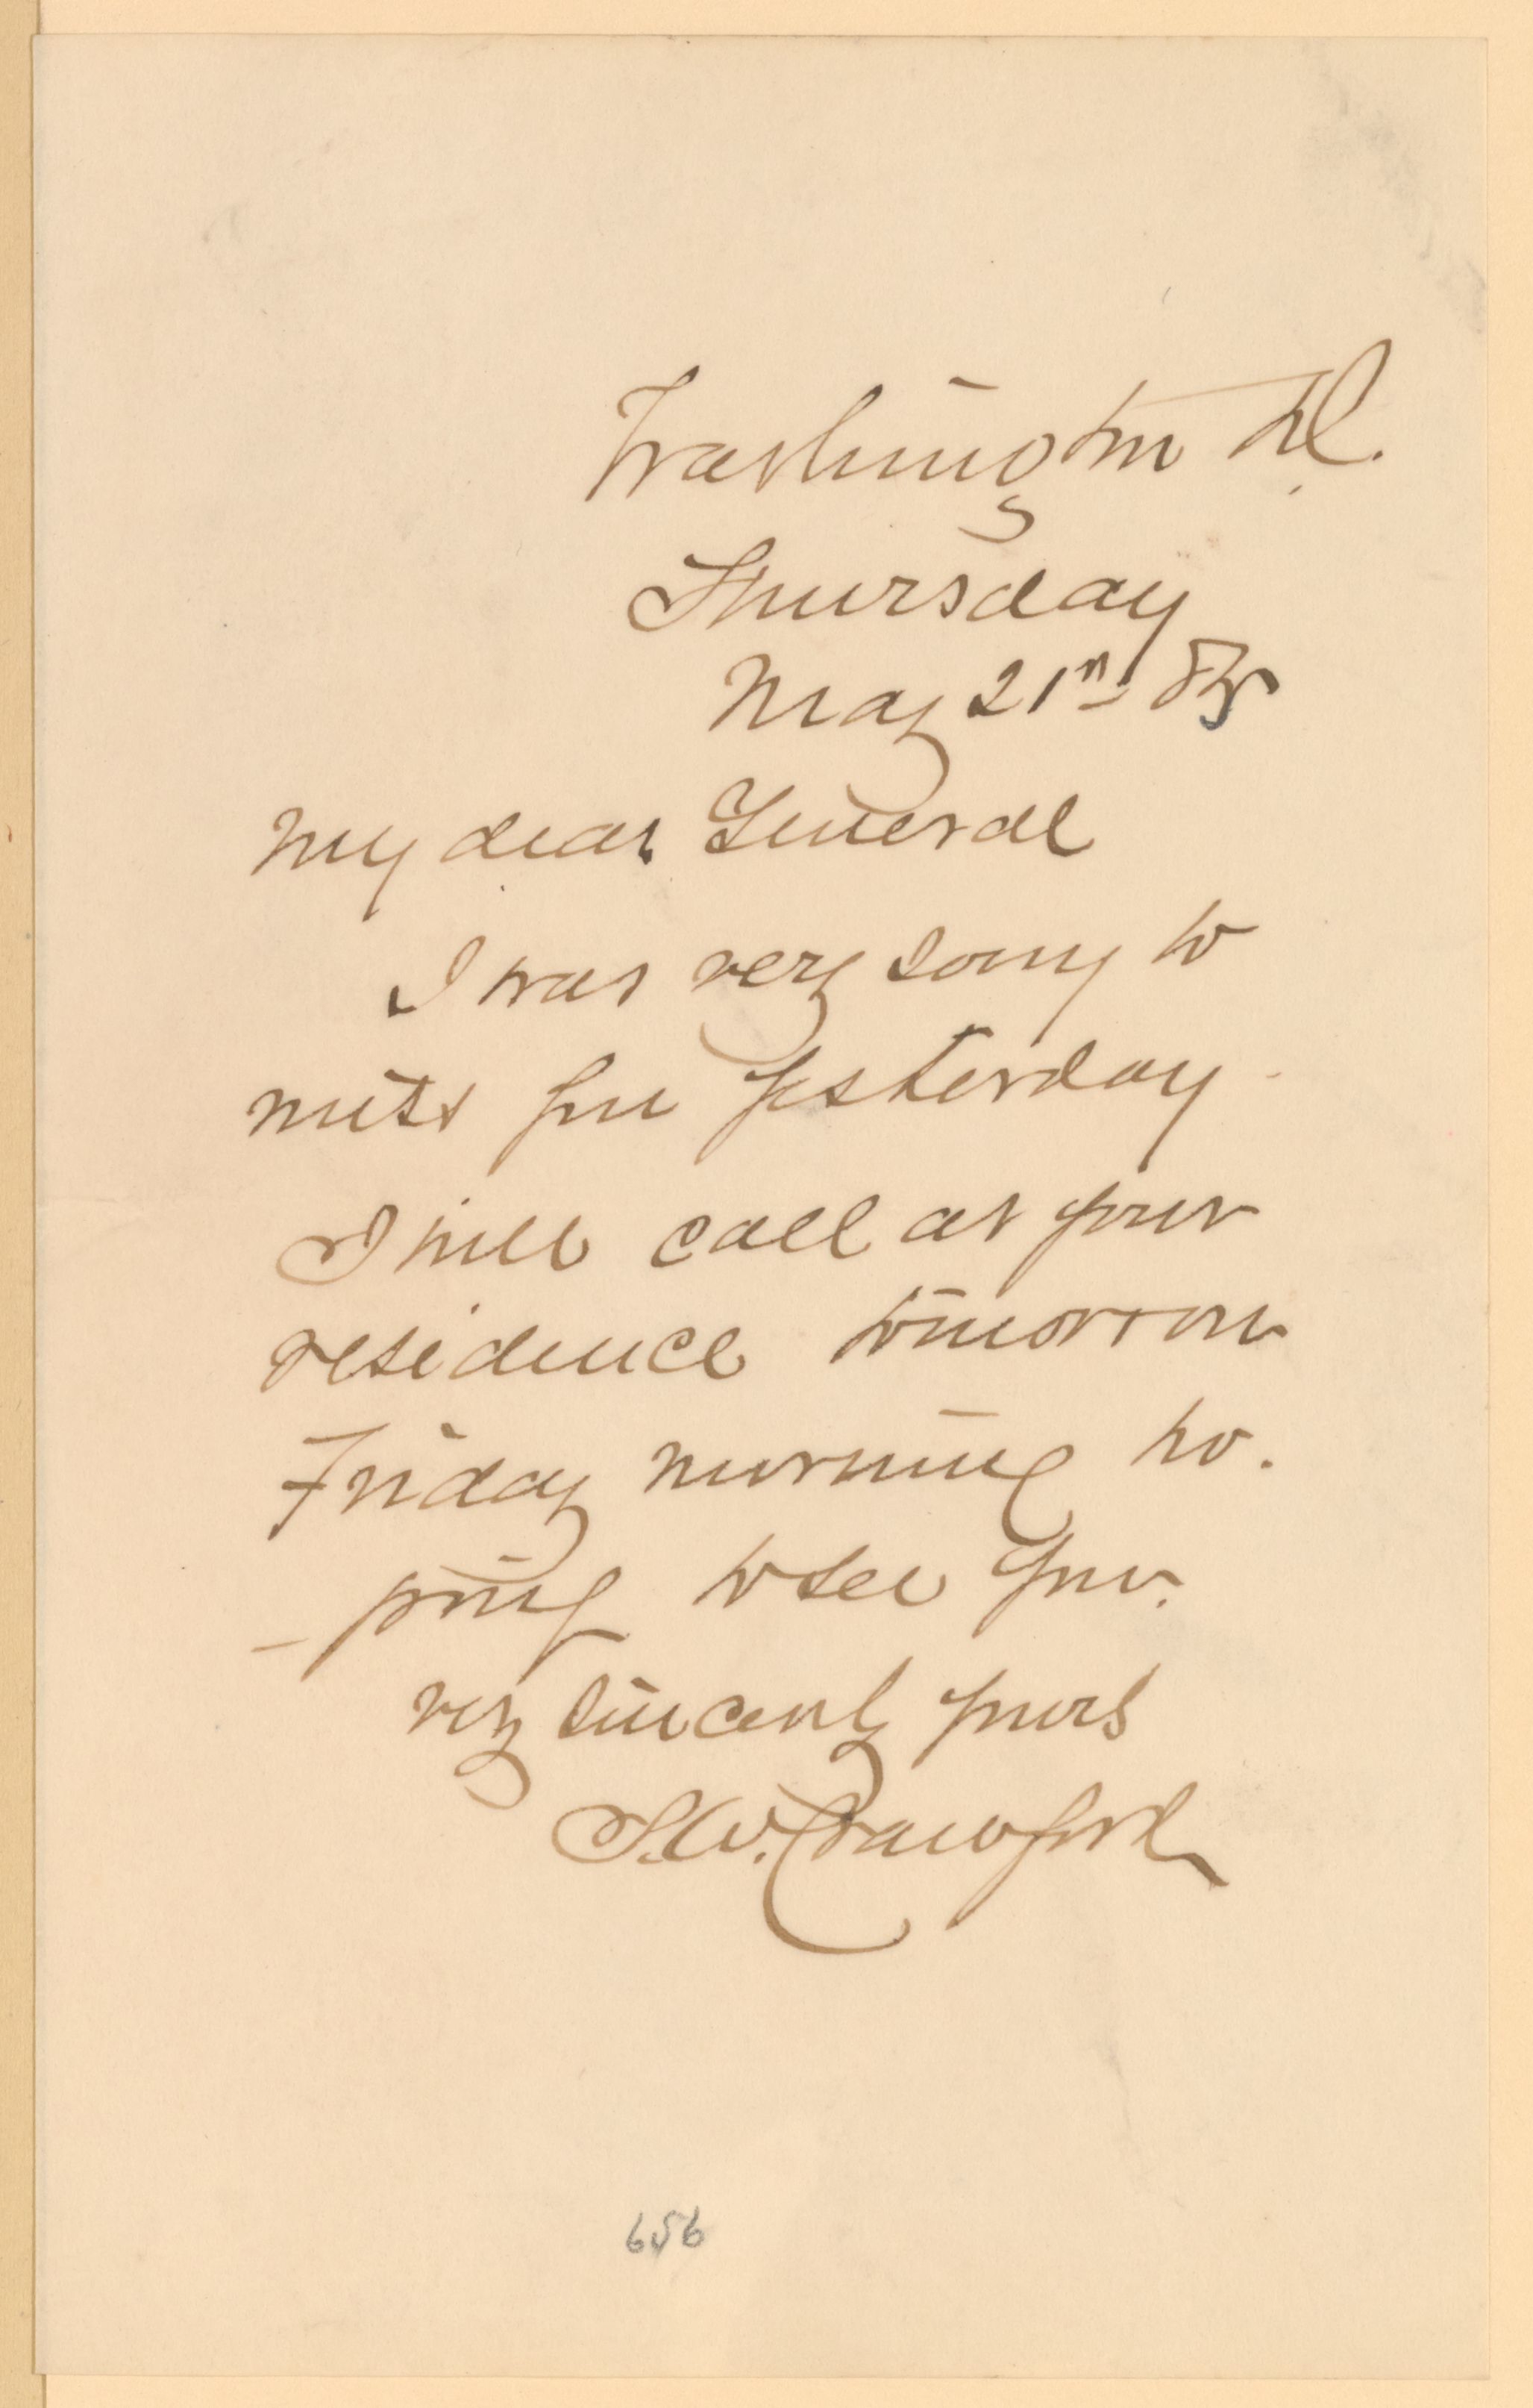 Washington D.C.
Thursday
May 21st 85
My dear General
I was very sorry to
miss you yesterday.
I will call at your
residence tomorrow
Friday morning ho-
-ping to see you.
very sincerely yours
S.W. Crawford
656